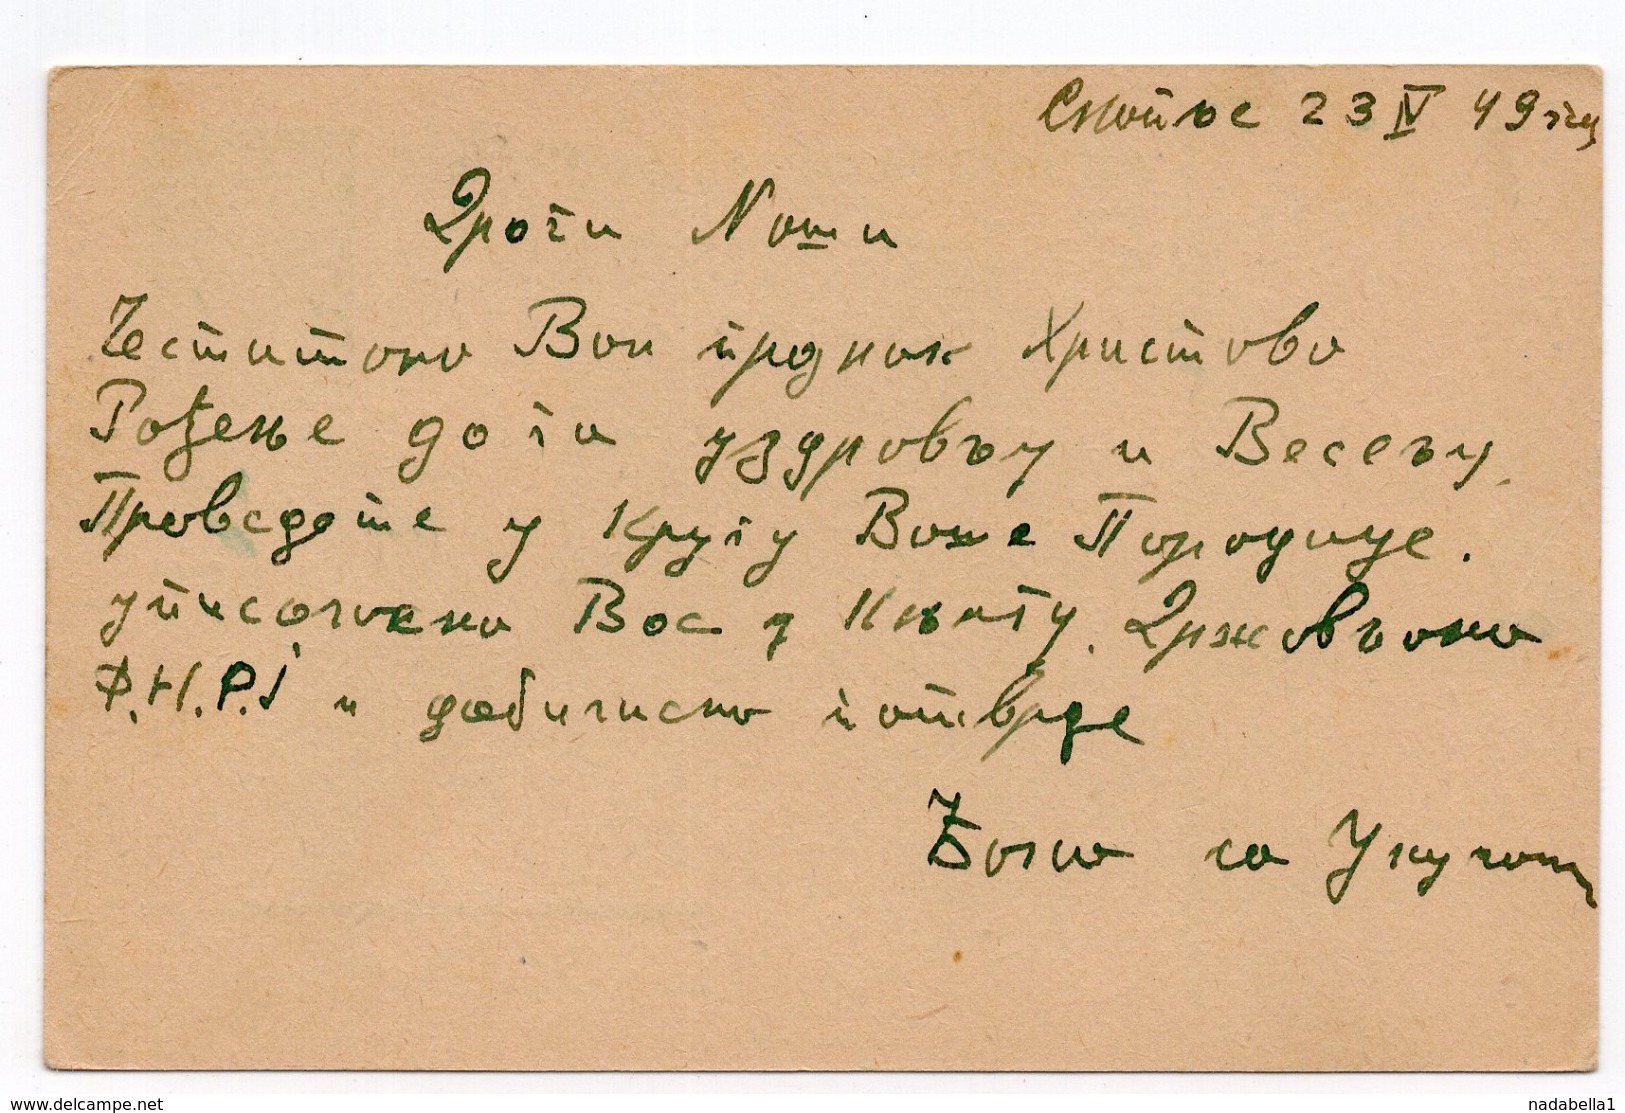 Скопље 23 IV 49 год
Драги Наши
Честитамо Вам празник Христово
Рођење да га у здрављу и Весељу.
Проведете у Кругу Ваше Породице.
уписасмо Вас у Књигу. Држављана
Ф.Н.Р.Ј и добићемо потврде
Боги са
www.delcampe.net
nadabella1